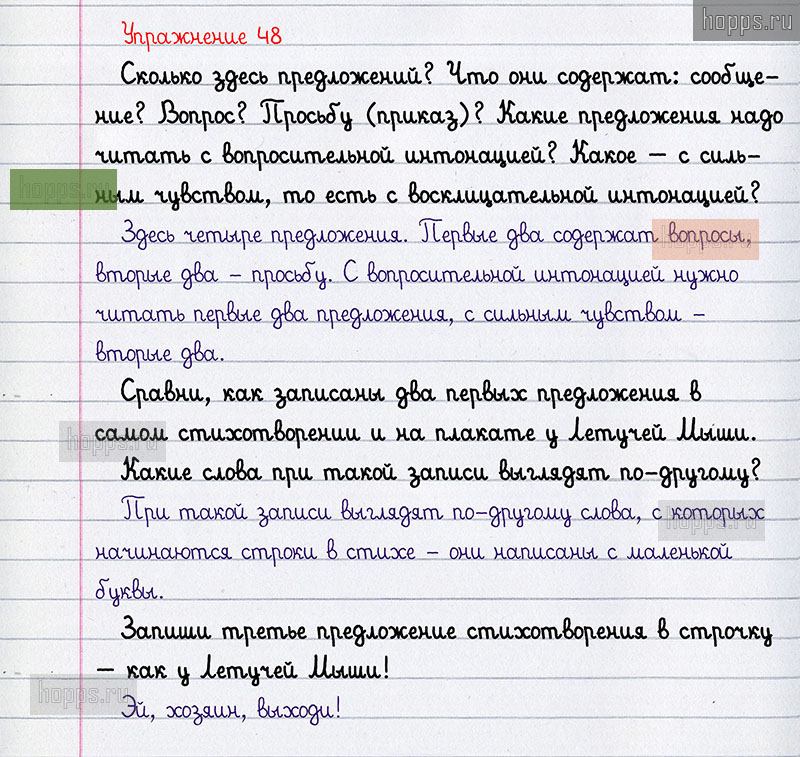 hopps.ru
Упражнение 48
Сколько здесь предложений? Что они содержат: сообще-
ние? Вопрос? Просьбу (приказ)? Какие предложения надо
читать с вопросительной интонацией? Какое – с силь-
hopps.ru
ным чувством, то есть с восклицательной интонацией?
Здесь четыре предложения. Первые два содержат вопросы,
hopps.ru
вторые два – просьбу. С вопросительной интонацией нужно
читать первые два предложения, с сильным чувством –
вторые два.
Сравни, как записаны два первых предложения в
самом стихотворении и на плакате у Летучей Мыши.
hopps.ru
Какие слова при такой записи выглядят по-другому?
При такой записи выглядят по-другому слова, с которых
hopps.ru
начинаются строки в стихе – они написаны с маленькой
буквы.
Запиши третье предложение стихотворения в строчку
– как у Летучей Мыши!
hopps.ru
Эй, хозяин, выходи!